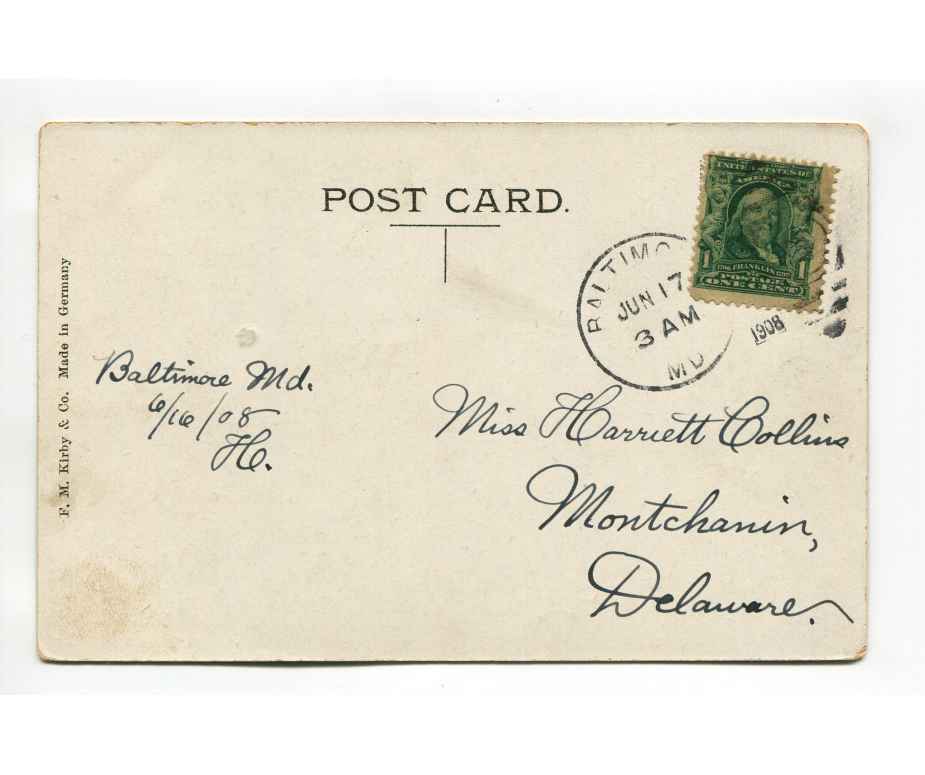 POST CARD.
UNITED STATES OF
AMERICA
1 FRANKLIN 1
POSTAGE
ONE CENT
BALTIMO
JUN 17
3 AM
MD
1908
F. M. Kirby & Co. Made in Germany
Baltimore Md.
6/16/08
H.
Miss Harriett Collins
Montchanin,
Delaware.